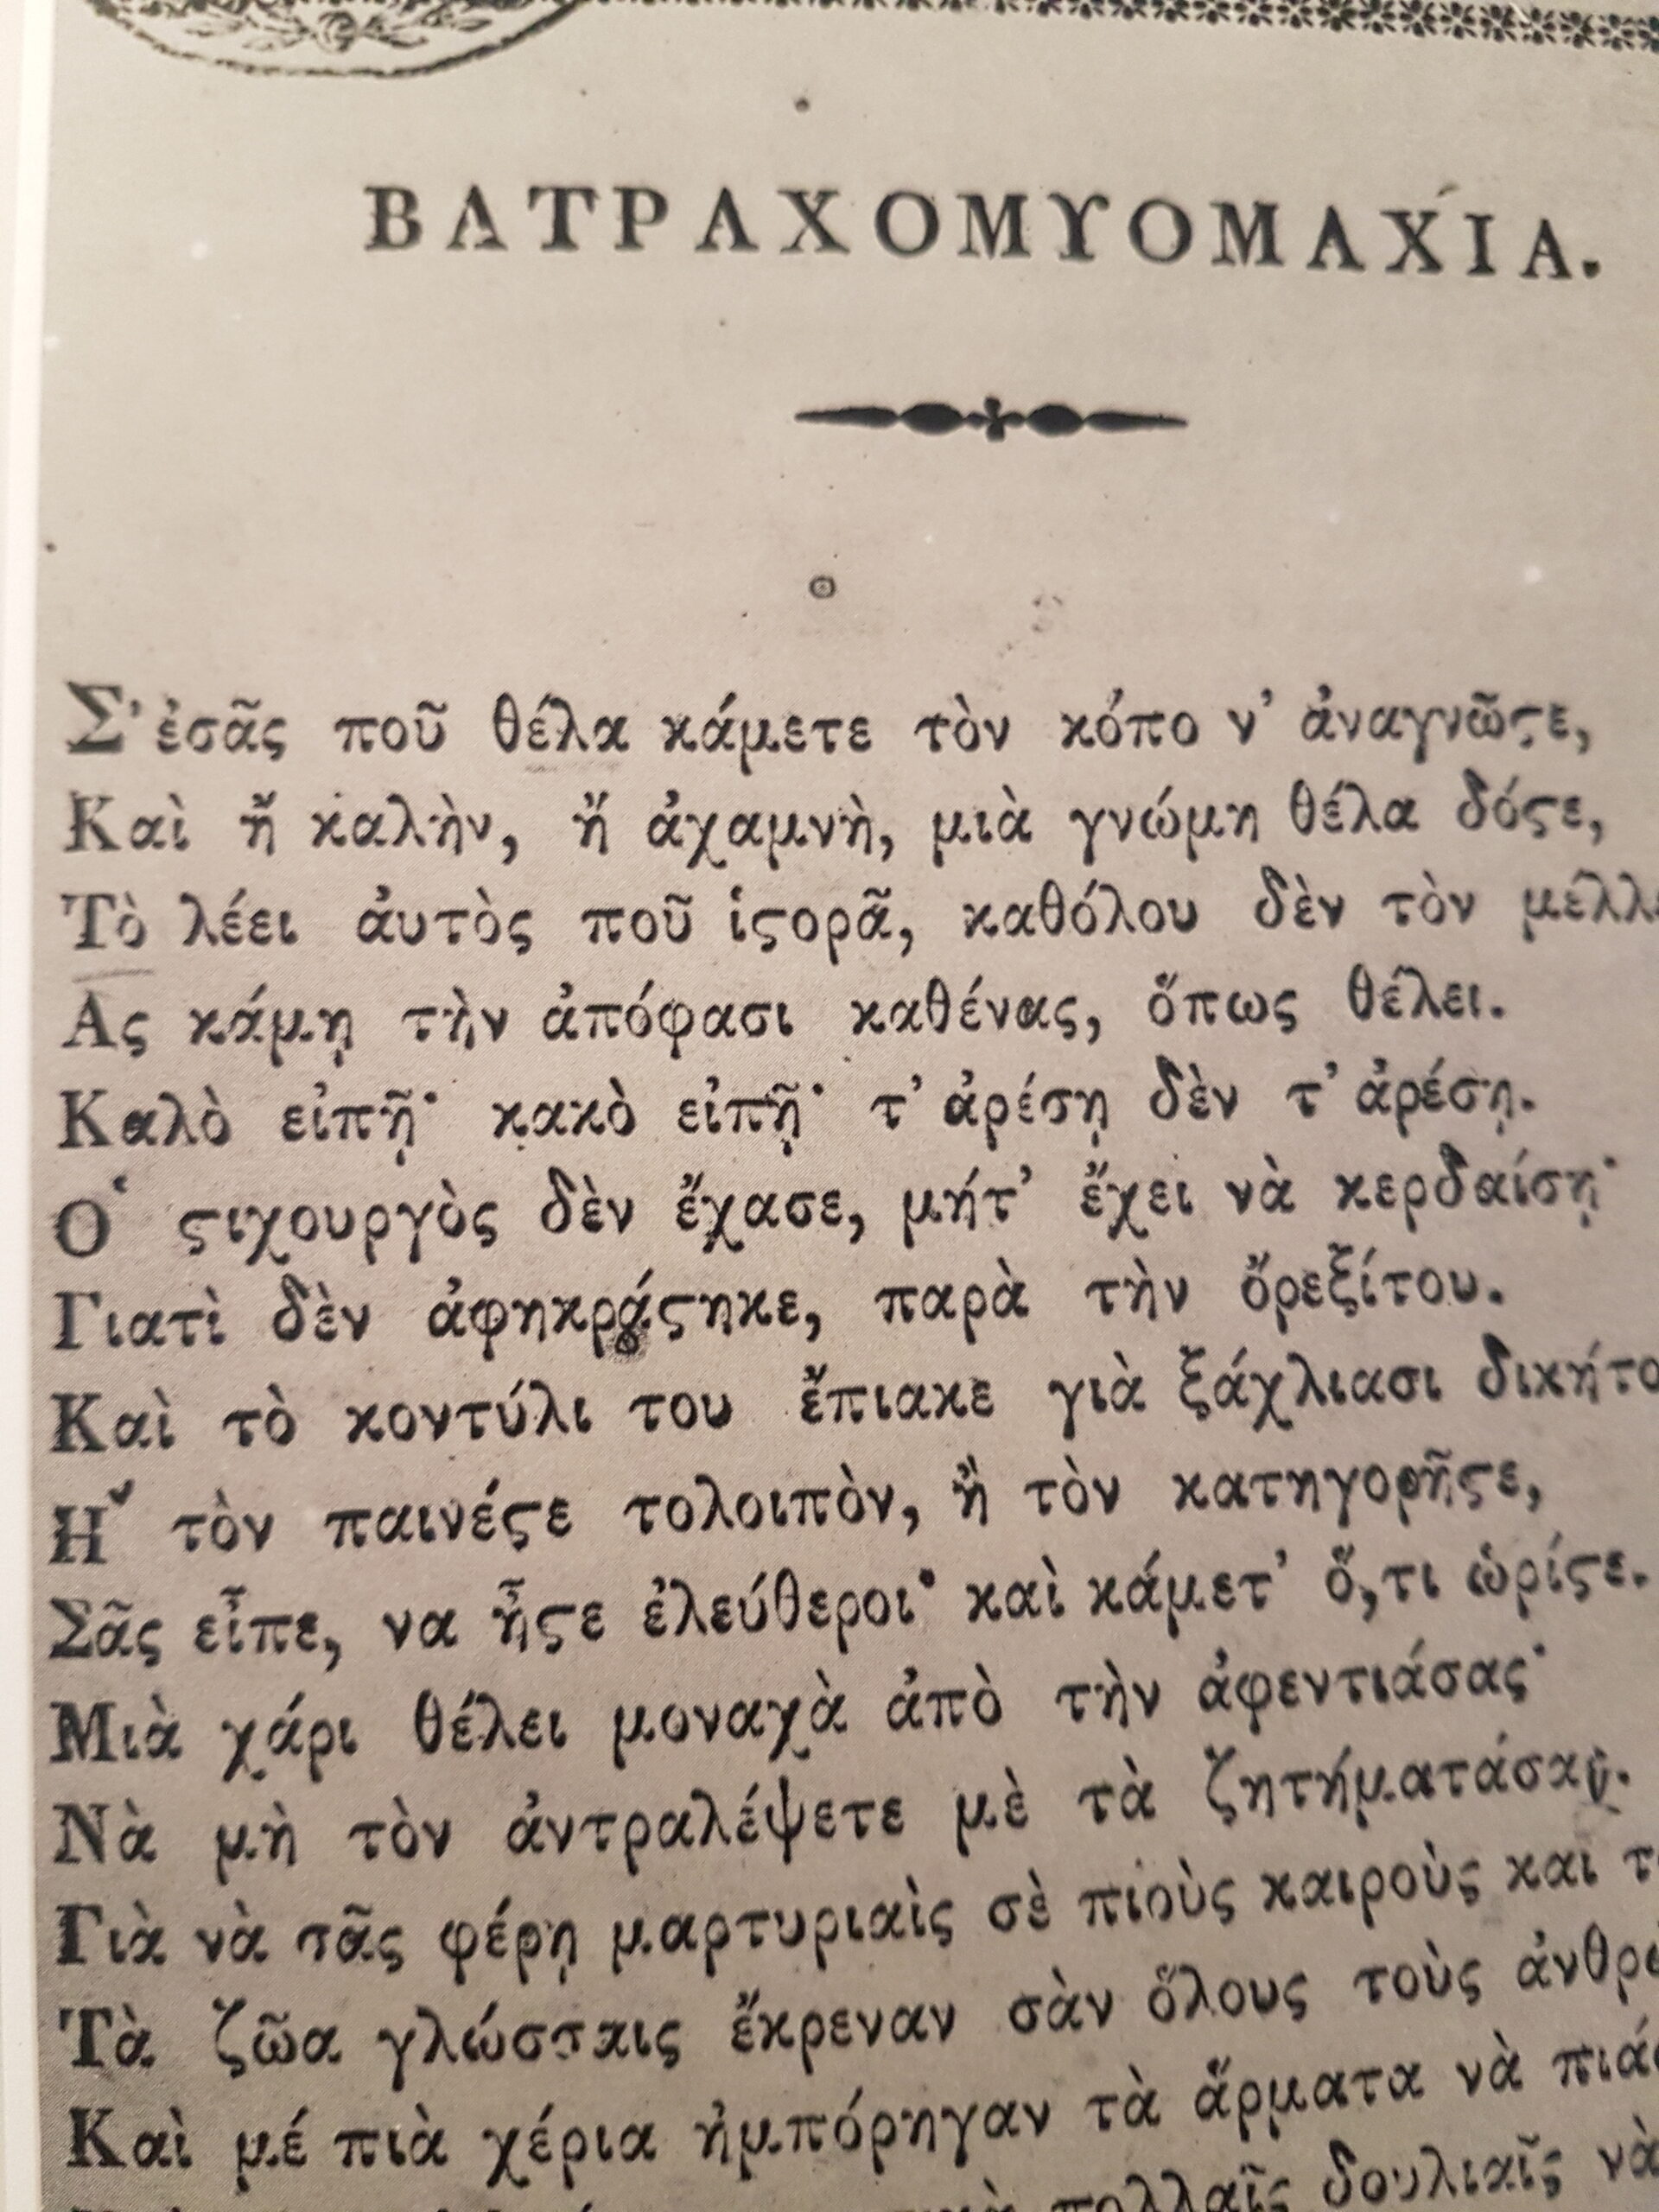 ΒΑΤΡΑΧΟΜΥΟΜΑΧΊΑ.
Σ' ἐσᾶς ποῦ θέλα κάμετε τὸν κόπο ν' ἀναγνῶϛε,
Καὶ ἢ καλὴν, ἢ ἀχαμνὴ, μιὰ γνώμη θέλα δόϛε,
Τὸ λέει ἀυτὸς ποῦ ἱϛορᾶ, καθόλου δὲν τὸν
Ας κάμῃ τὴν ἀπόφασι καθένας, ὅπως θέλει.
Καλὸ εἰπῇ· κακὸ εἰπῇ· τ' ἀρέσῃ δὲν τ' ἀρέσῃ.
Ὁ ϛιχουργὸς δὲν ἔχασε, μήτ' ἔχει νὰ κερδαίσῃ·
Γιατὶ δὲν ἀφηκράϛηκε, παρὰ τὴν ὄρεξίτου.
Καὶ τὸ κοντύλι του ἔπιακε γιὰ ξάχλιασι
Ἢ τὸν παινέϛε τολοιπὸν, ἢ τὸν κατηγορῆϛε,
Σᾶς εἶπε, να ἦϛε ἐλεύθεροι· καὶ κάμετ' ὅ,τι ὡρίϛε.
Μιὰ χάρι θέλει μοναχὰ ἀπὸ τὴν ἀφεντιάσας·
Νὰ μὴ τὸν ἀντραλέψετε μὲ τὰ
Γιὰ νὰ σᾶς φέρῃ μαρτυριαὶς σὲ πιοὺς καιροὺς καὶ
Τὰ ζῶα γλώσσαις ἔκρεναν σὰν ὅλους τοὺς
Καὶ μέ πιὰ χέρια ἠμπόρηγαν τὰ ἄρματα νὰ
πολλαῖς δουλιαῖς νὰ